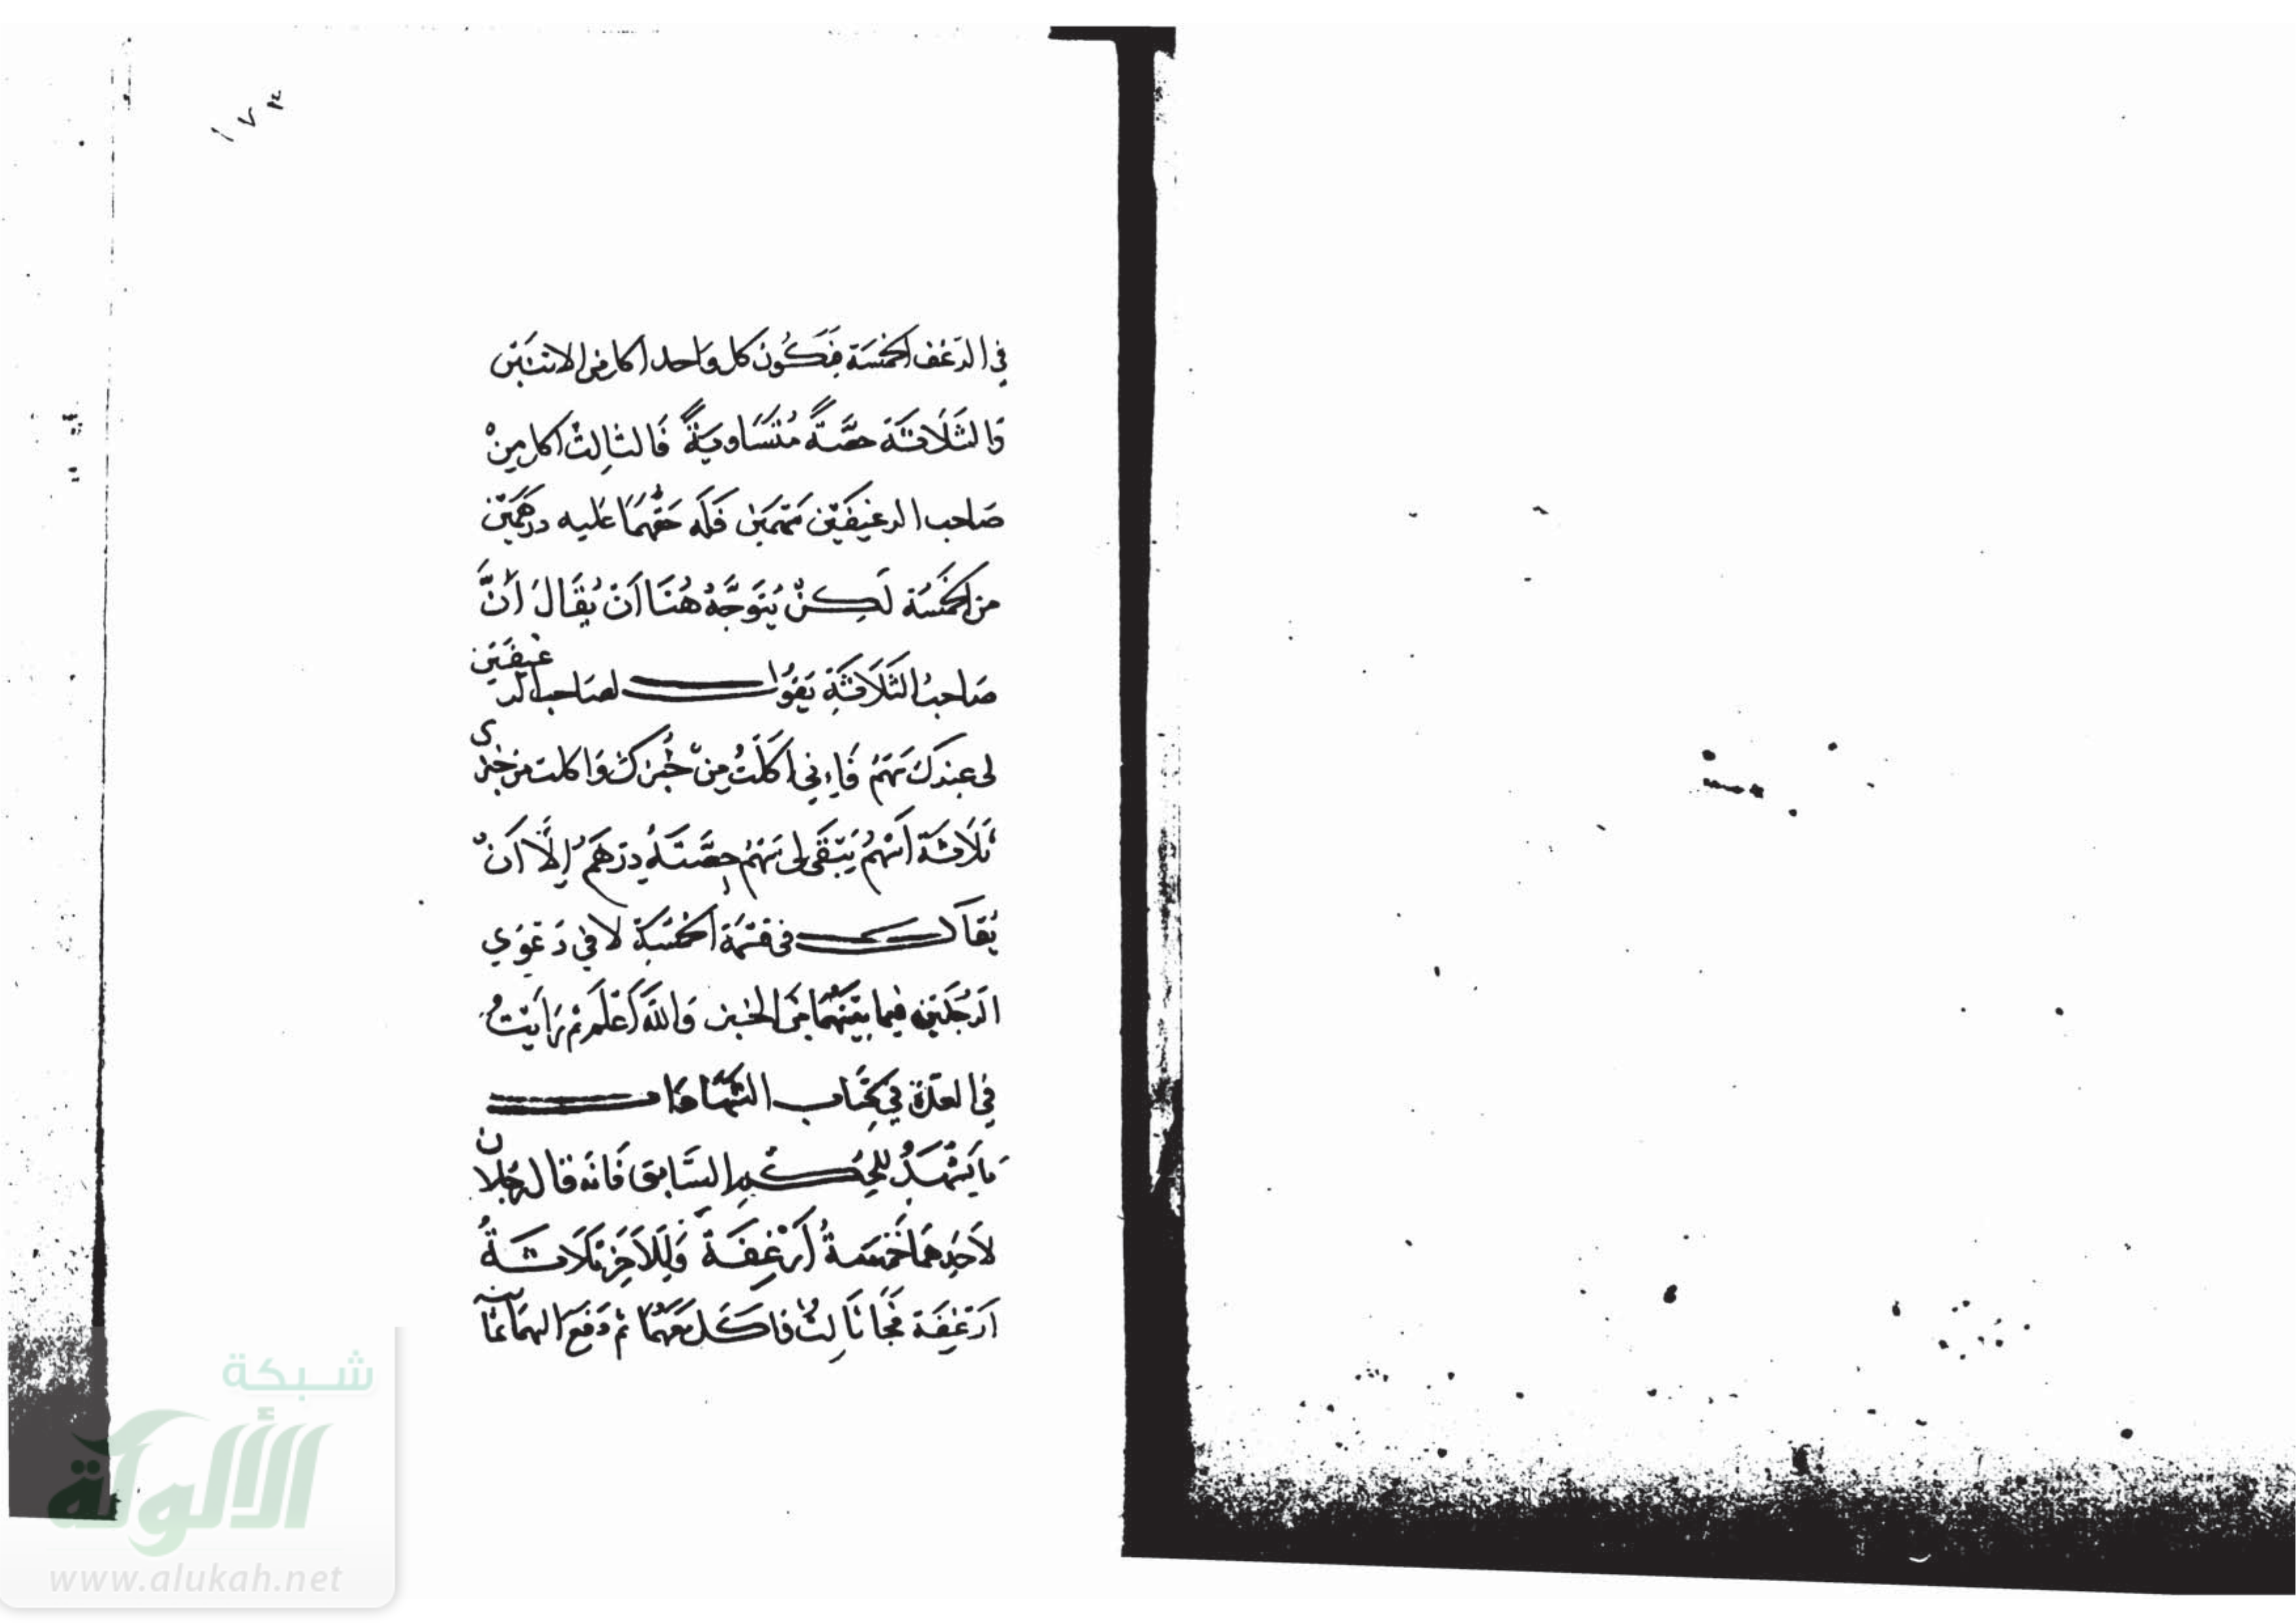 ١٧٤
في الرغف الخمسة فيكون كل واحد اكل من الاثنين
والثلاثة حصَّةً مُتَسَاويَةً فَالثالِث اكل مِنْ
صَاحب الرغيفَيْن سَهمَين فَلَه حَقُّهمَا عَليه درهمَين
من الخمسَة لَكِنْ يُتَوجَّهُ هُنَا اَنْ يُقَالَ اَنَّ
صَاحبُ الثَلَاثَةِ يَقوُل لصَاحب الرغيفَين
لى عِندَكَ سَهَمُ فَاِني اكَلْتُ مِنْ خُبزك وَاكلت من خبزى
ثَلَاثَة اَسْهُمُ يَبْقَى لى سَهَمُ حِصَّتَهُ دِرْهَمُ إلَّا اَنْ
يُقَال في قسْمَة الخمْسَة لا في دَعْوَي
الرَجُلَيْن فيما بَيْنَهُمَا مِنَ الخبز وَاللَّهُ اَعْلَم ثم رَايْتُ
في العدّة في كِتَاب الشهَادَات
مَا يَشْهَدُ للحُكْم السَّابق فَانه قال رَجُلان
لاَحَدِهمَا خَمْسَةُ اَرْغِفَة وَلِلآخَر ثَلَاثَةُ
اَرْغِفَة فَجَا ثَالِثُ فاكَل مَعَهُمَا ثم دَفَعَ الَيهمَا ثمانية
شبكة
الألوكة
www.alukah.net